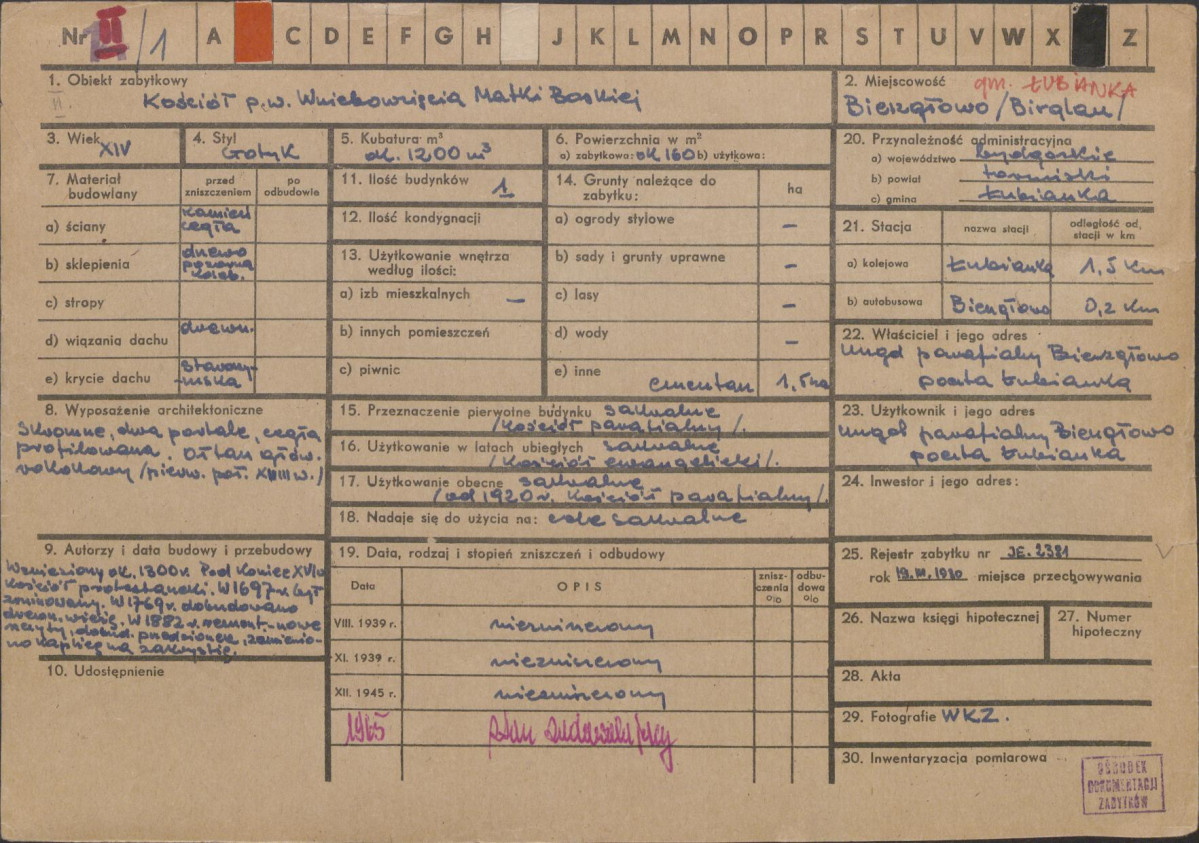 Nr II/1 A C D E F G H J K L M N O P R S T U V W X Z
1. Obiekt zabytkowy
Kościół p.w. Wniebowzięcia Matki Boskiej
2. Miejscowość gm. ŁUBIANKA
Bierzgłowo /Birglau/
3. Wiek
XIV
4. Styl
Gotyk
5. Kubatura m³
ok. 1200 m³
6. Powierzchnia w m²
a) zabytkowa: ok 160 b) użytkowa:
20. Przynależność administracyjna
a) województwo bydgoskie
b) powiat toruński
c) gmina Łubianka
7. Materiał budowlany
przed zniszczeniem
po odbudowie
a) ściany kamień cegła
b) sklepienia drewno pozorna koleb.
c) stropy
d) wiązania dachu drewn.
e) krycie dachu
11. Ilość budynków 1
12. Ilość kondygnacji
13. Użytkowanie wnętrza
według ilości:
a) izb mieszkalnych –
b) innych pomieszczeń
c) piwnic
14. Grunty należące do
zabytku:
ha
a) ogrody stylowe –
b) sady i grunty uprawne –
c) lasy –
d) wody –
e) inne cmentarz 1,5 ha
21. Stacja
nazwa stacji
odległość od stacji w km
a) kolejowa Łubianka 1,5 km
b) autobusowa Bierzgłowo 0,2 km
22. Właściciel i jego adres
Urząd parafialny Bierzgłowo
poczta Łubianka
8. Wyposażenie architektoniczne
Skromne, dwa portale, cegła
profilowana. Ołtarz głów.
rokokowy /pierw. poł. XVIII w./
15. Przeznaczenie pierwotne budynku sakralne
/Kościół parafialny/.
16. Użytkowanie w latach ubiegłych sakralne
/Kościół ewangelicki/.
17. Użytkowanie obecne sakralne
/od 1920 r. Kościół parafialny/.
18. Nadaje się do użycia na: cele sakralne
23. Użytkownik i jego adres
Urząd parafialny Bierzgłowo
poczta Łubianka
24. Inwestor i jego adres:
9. Autorzy i data budowy i przebudowy
Wzniesiony ok. 1300 r. Pod koniec XVI w
Kościół protestancki. W 1697 r. był
zrujnowany. W 1769 r. dobudowano
drewn. wieżę. W 1882 r. remont - nowe
szczyty, dobud. przedsionek, zamienio-
no kaplicę na zakrystię.
10. Udostępnienie
19. Data, rodzaj i stopień zniszczeń i odbudowy
Data
OPIS
znisz-
czenia
%
odbu-
dowa
%
VIII. 1939 r. niezniszczony
XI. 1939 r. niezniszczony
XII. 1945 r. niezniszczony
1965 stan
25. Rejestr zabytku nr JE. 2381
rok 19.III.1930 miejsce przechowywania
26. Nazwa księgi hipotecznej
27. Numer
hipoteczny
28. Akta
29. Fotografie WKZ.
30. Inwentaryzacja pomiarowa
OŚRODEK
DOKUMENTACJI
ZABYTKÓW